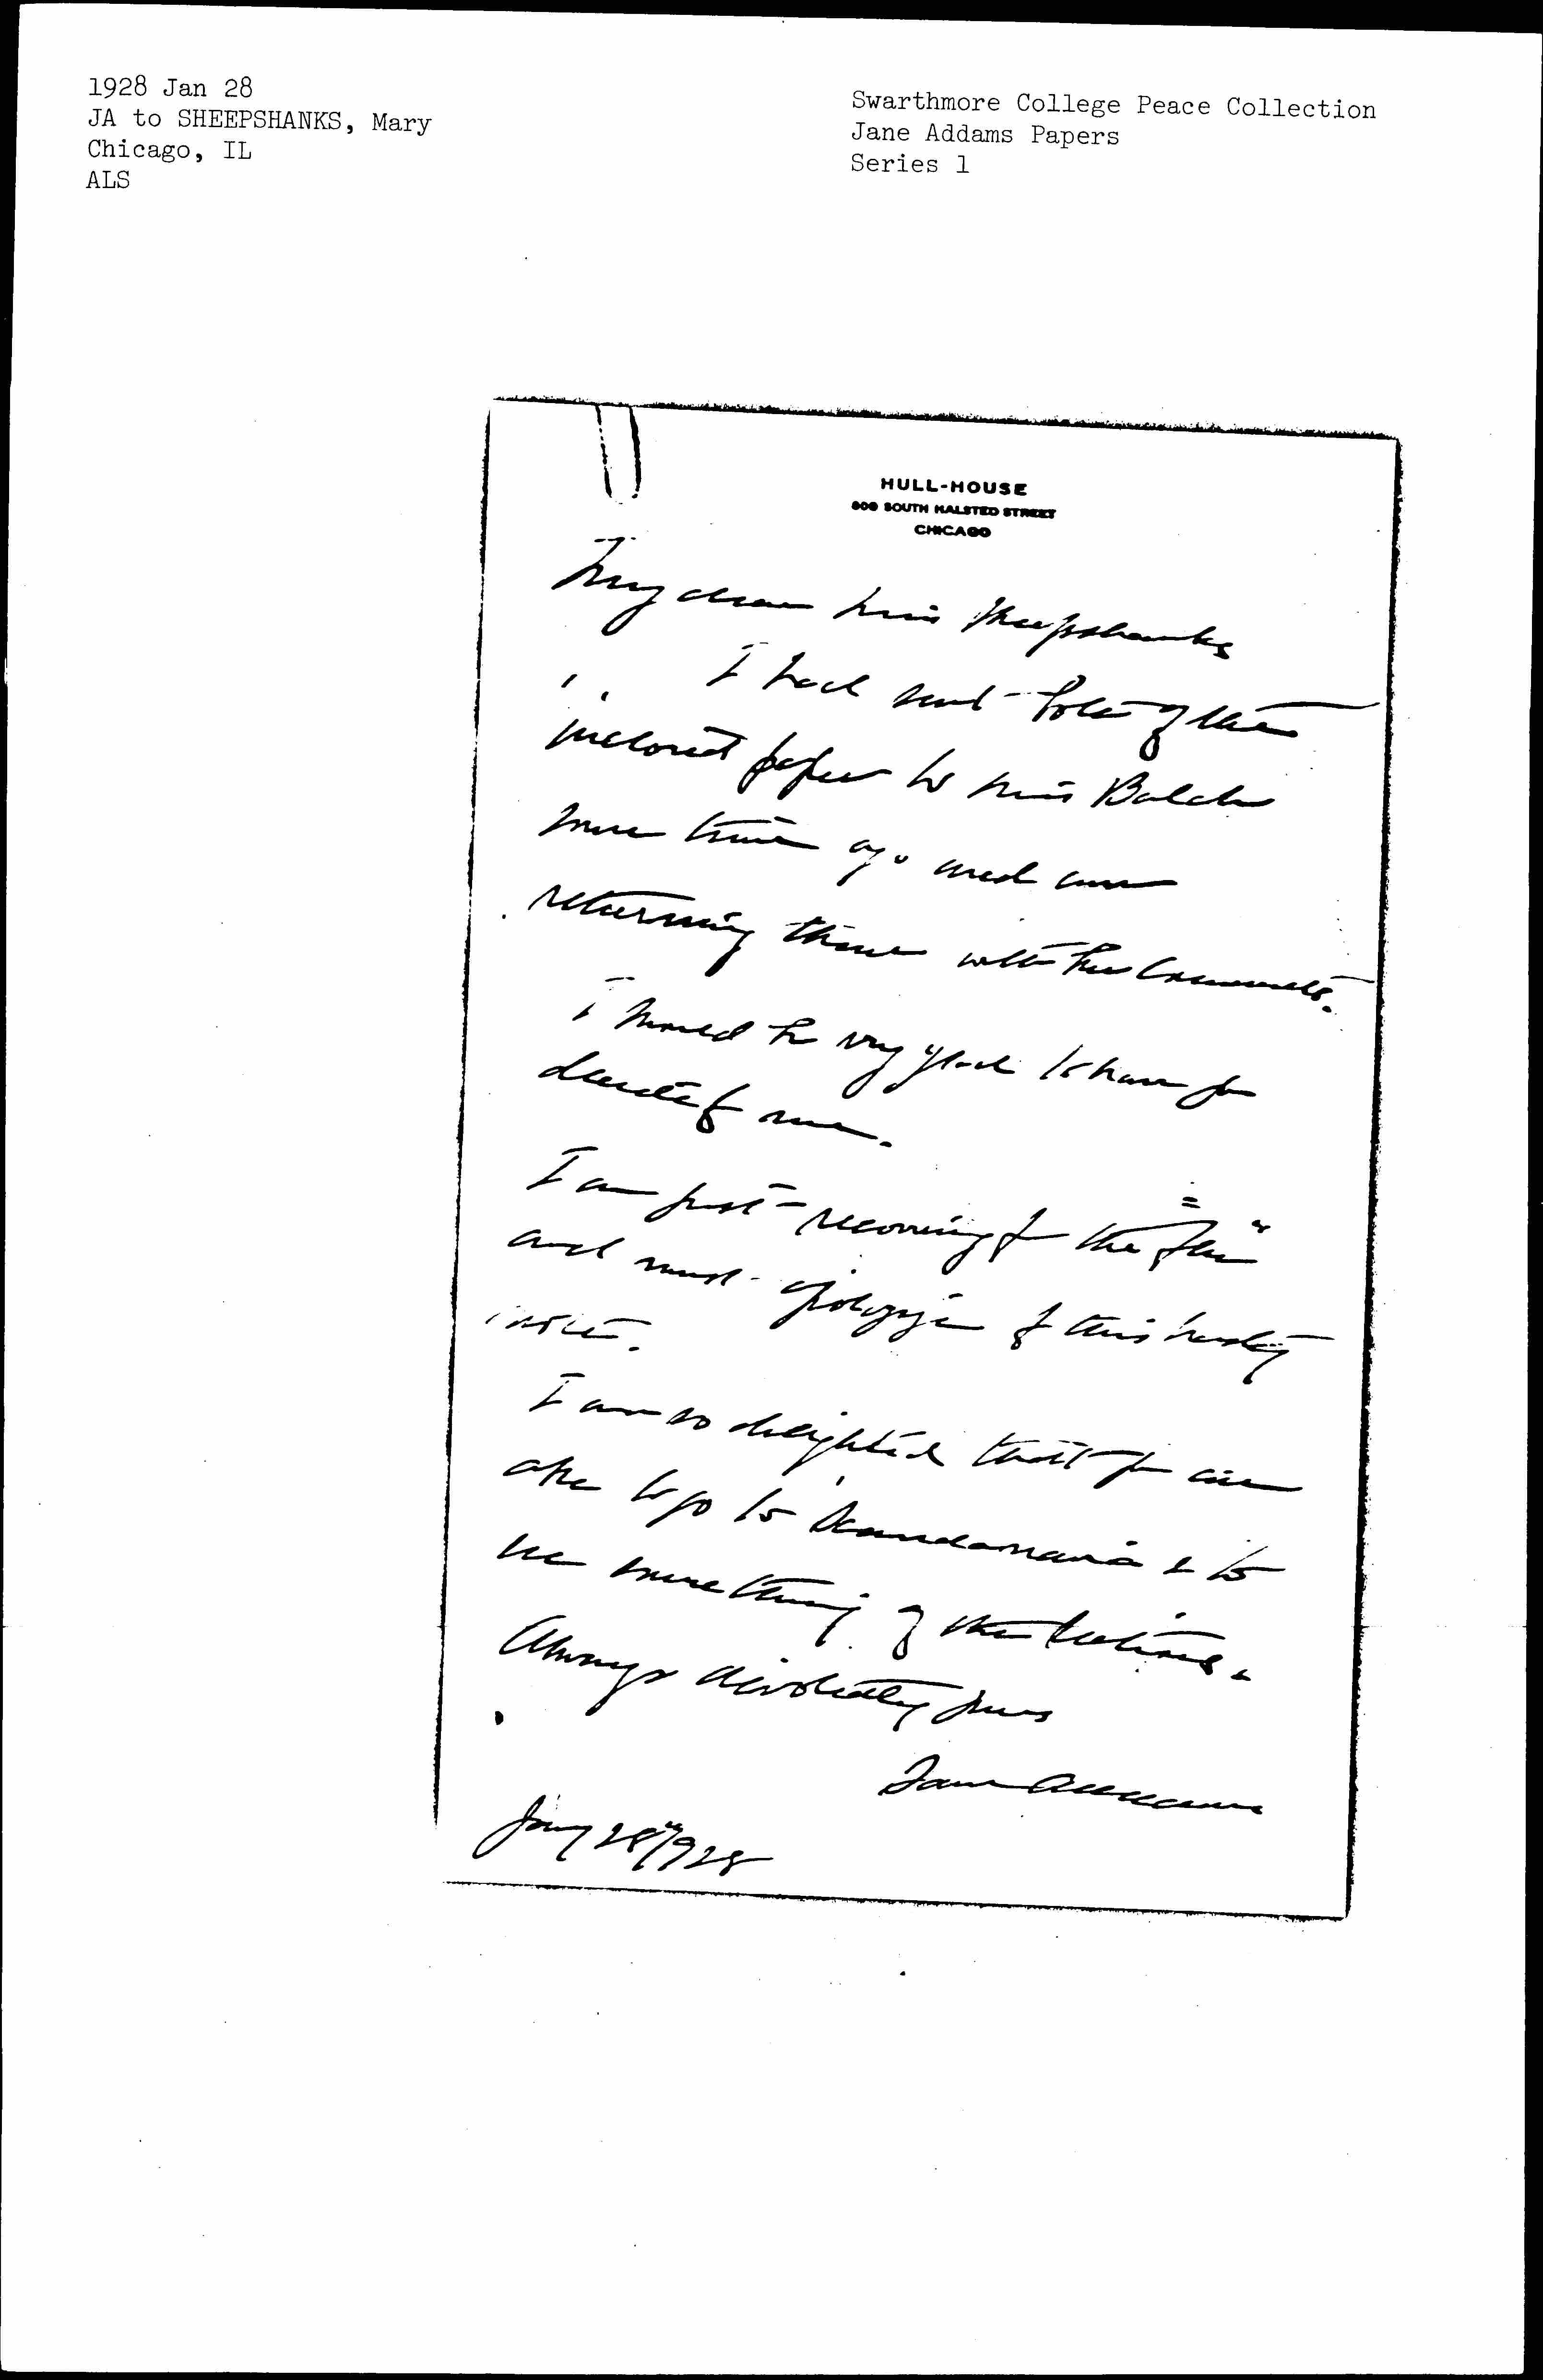 1928 Jan 28
JA to SHEEPSHANKS, Mary
Chicago, IL
ALS
Swarthmore College Peace Collection
Jane Addams Papers
Series 1
HULL-HOUSE
800 SOUTH HALSTED STREET
CHICAGO
My dear Miss Sheepshanks
I had sent both of the
inclosed papers to Miss Balch
some time ago and am
returning them with her comments.
I should be very glad to have you
I am just recovering from the "flu"
and must apologize for this hasty
note.
I am so delighted that you are
able to go to Scandanavia & to
see something of the sections.
Always devotedly yours
Jane Addams
Jany 28" 1928